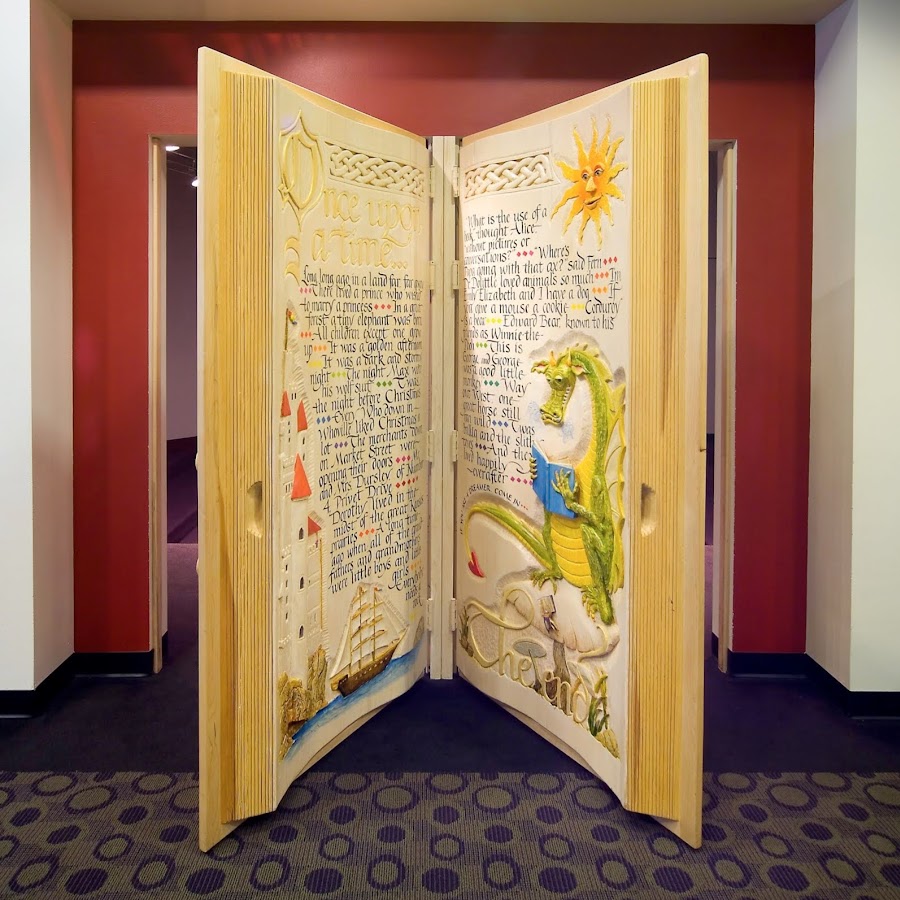 Once upon
a time...
Long, long ago in a land far, far away
There lived a prince who wished
to marry a princess In a great
forest a tiny elephant was born
All children, except one, grow
up It was a golden afternoon
It was a dark and stormy
night The night Max wore
his wolf suit 'Twas
the night before Christmas
Every Who down in
Whoville liked Christmas a
lot The merchants
on Market Street were
opening their doors Mr.
and Mrs. Dursley of Number
4, Privet Drive
Dorothy lived in the
midst of the great Kansas
prairies A long time
ago, when all of the grand
fathers and grandmothers
were little boys and little
girls
Everybody
needs
"What is the use of a
book," thought Alice,
"without pictures or
conversations?" "Where's
Papa going with that ax?" said Fern
Dr. Dolittle loved animals so much I'm
Emily Elizabeth and I have a dog If
you give a mouse a cookie Corduroy
is a bear Edward Bear, known to his
friends as Winnie-the-
Pooh This is
George and George
was a good little
monkey Way
out West one
great horse still
ran wild 'Twas
brillig and the slithy
toves And they
lived happily
ever after
DREAMER COME IN...
The End